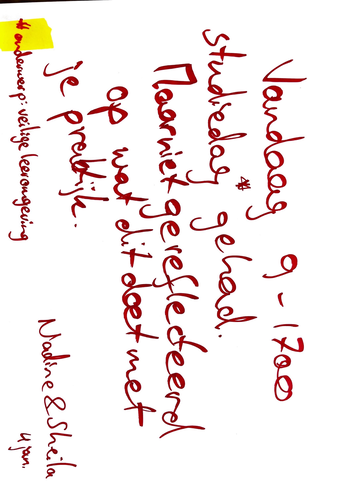 Vandaag 9 - 1700
studiedag # gehad.
Maar niet gereflecteerd
op wat dit doet met
je praktijk.
Nadine & Sheila
4 jan.
# onderwerp: veilige leeromgeving